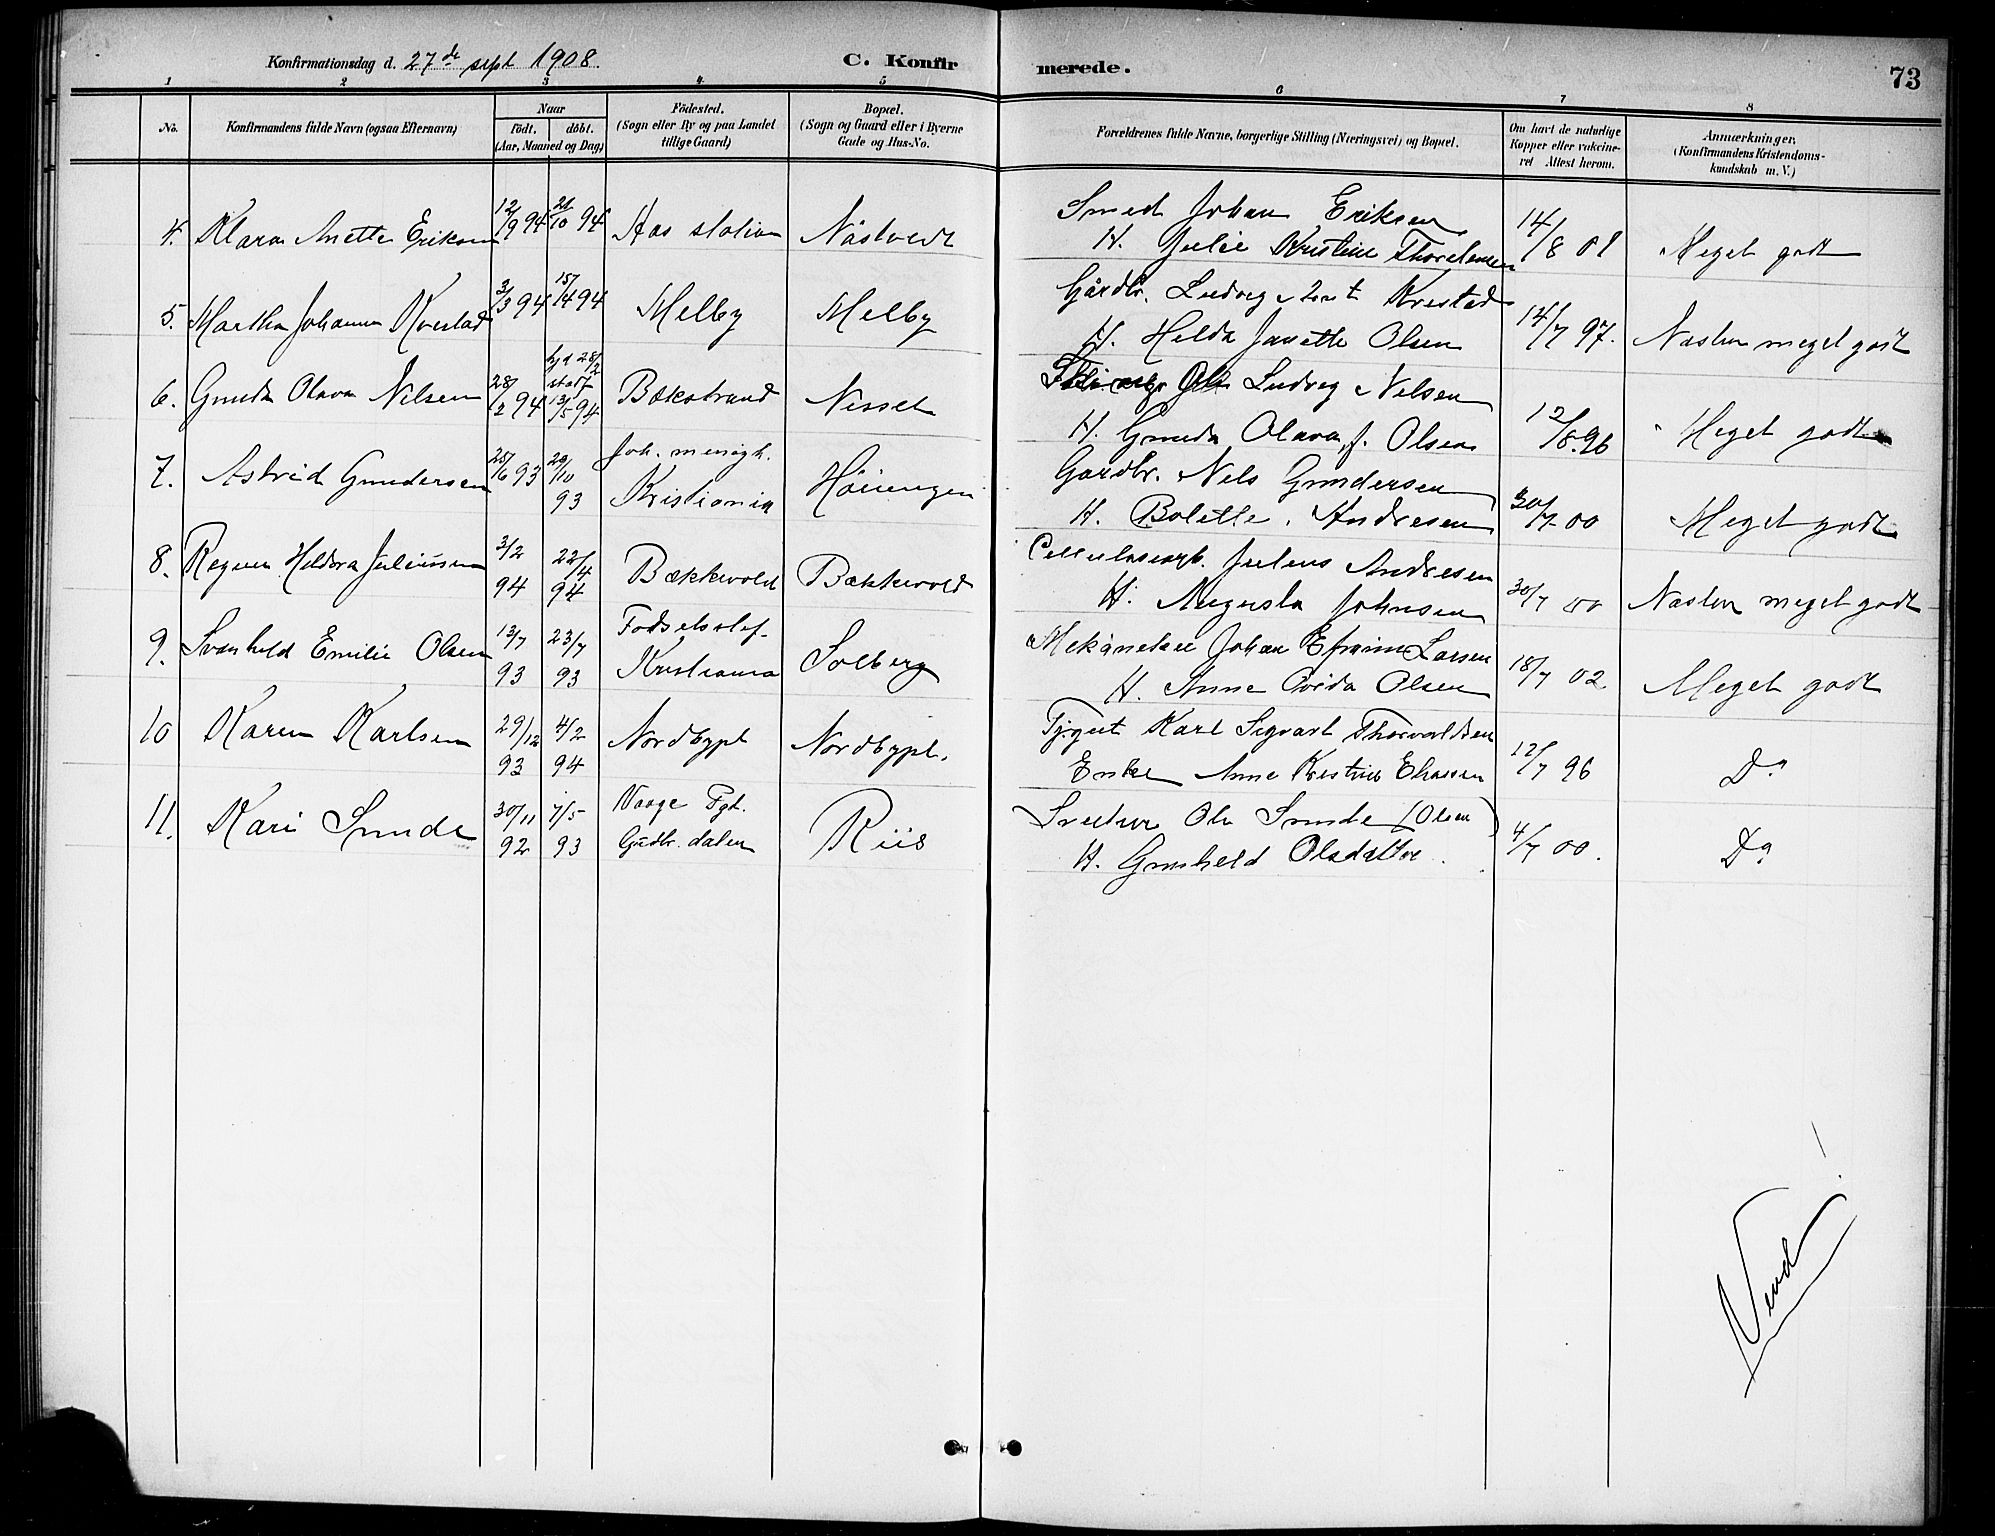 Konfirmationsdag d. 27de sept 1908.
C. Konfirmerede.
73
1 2 3 4 5 6 7 8
No.
Konfirmandens fulde Navn (ogsaa Efternavn)
Naar
födt. döbt.
(Aar, Maaned og Dag)
Födested.
(Sogn eller By og paa Landet
tillige Gaard)
Bopæl.
(Sogn og Gaard eller i Byerne
Gade og Hus-No.
Forældrenes fulde Navne, borgerlige Stilling (Næringsvei) og Bopæl.
Om havt de naturlige
Kopper eller vakcine-
ret Attest herom.
Anmærkninger,
(Konfirmandens Kristendoms-
kundskab m. V.)
4. Klara Anette Eriksen 12/9 94 21/10 94 Aas station Nåstvedt
Smed Johan Eriksen
H. Julie Kristine 14/8 01 Meget godt
5. Martha Johanna Kvestad 3/3 94 15/4 94 Melby Melby
Gårdbr. Ludvig Kvestad
H. Helda Janette Olsen 14/7 97. Næsten meget godt
6. Gunda Olava Nilsen 28/2 94 hjd 28/2
stadf 13/5 94 Bækstrand Nesset
Ludvig Nilsen
H. Gunda Olava f. Olsen 12/8 96 Meget godt
7. Astrid Gundersen 25/6 93 29/10 93 Joh. menigh.
Kristiania
Gårdbr. Nils Gundersen
H. Bolette Andresen 30/7 00 Meget godt
8. Heldora Juliussen 3/2 94 22/4 94 Bækkevold Bækkevold
Cellulosearb. Julius Andresen
H. Augusta Johnsen 30/7 00 Næsten meget godt
9. Svanhild Emilie Olsen 13/7 93 23/7 93 Fødselsstif.
Kristiania Solberg
Johan Efraim Larsen
H. Anne Olsen 18/7 02 Meget godt
10 Karen Karlsen 29/12 93 4/2 94 Nordbypl Nordbypl.
Karl Sigvart Thorvaldsen
Enke Anne Kristine 12/7 96 Do
11. Kari Sunde 30/11 92 7/5 93 Vaage Pgl.
Gudbr. dalen Riis
Ole Sunde (Olsen)
H. Gunhild Olsdatter. 4/7 00. Do
Vend!